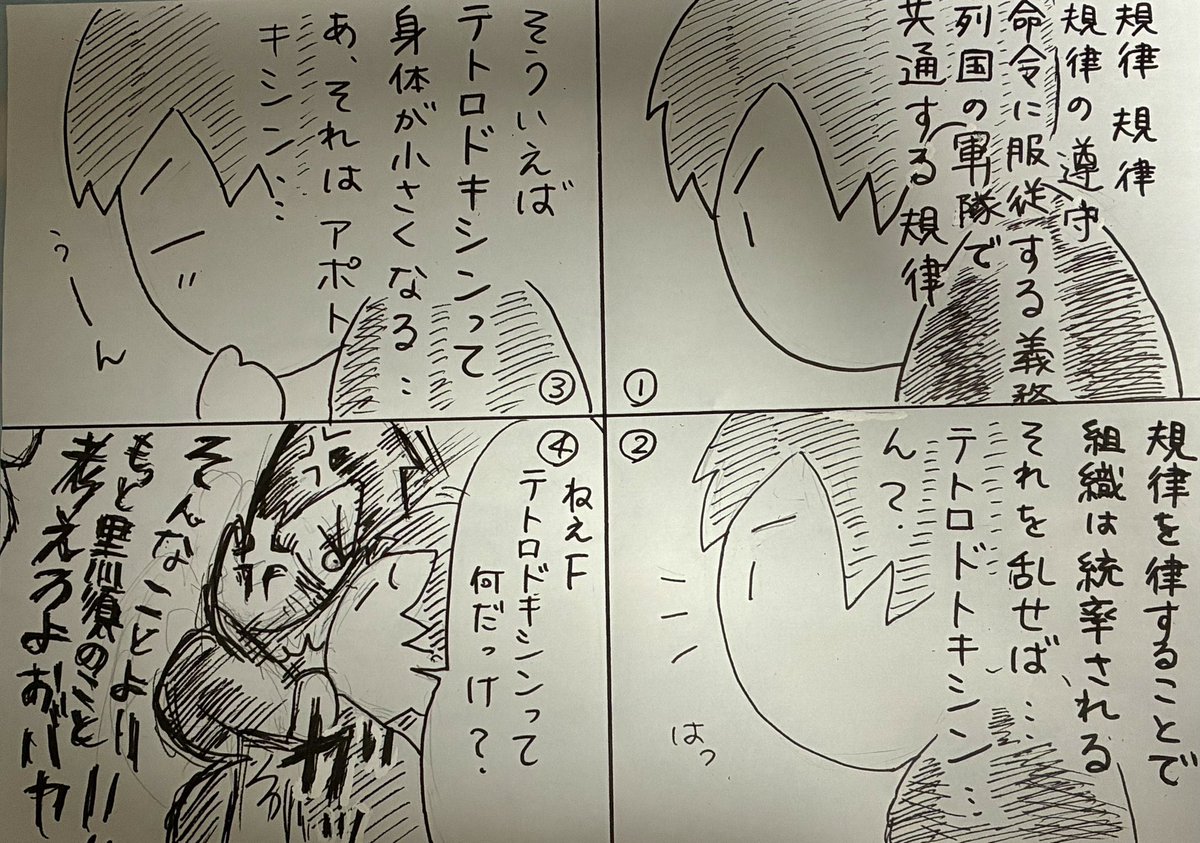 規律 規律
規律の遵守
命令に服従する義務
列国の軍隊で
共通する規律
①
規律を律することで
組織は統率される
それを乱せば…
テトロドトキシン…
ん?
はっ
②
そういえば
テトロドキシンって
身体が小さくなる…
あ、それはアポト
キシン…
うーん
③
④
ねぇF
テトロドキシンって
何だっけ?
そんなことより
もっと黒須のこと
考えろよ